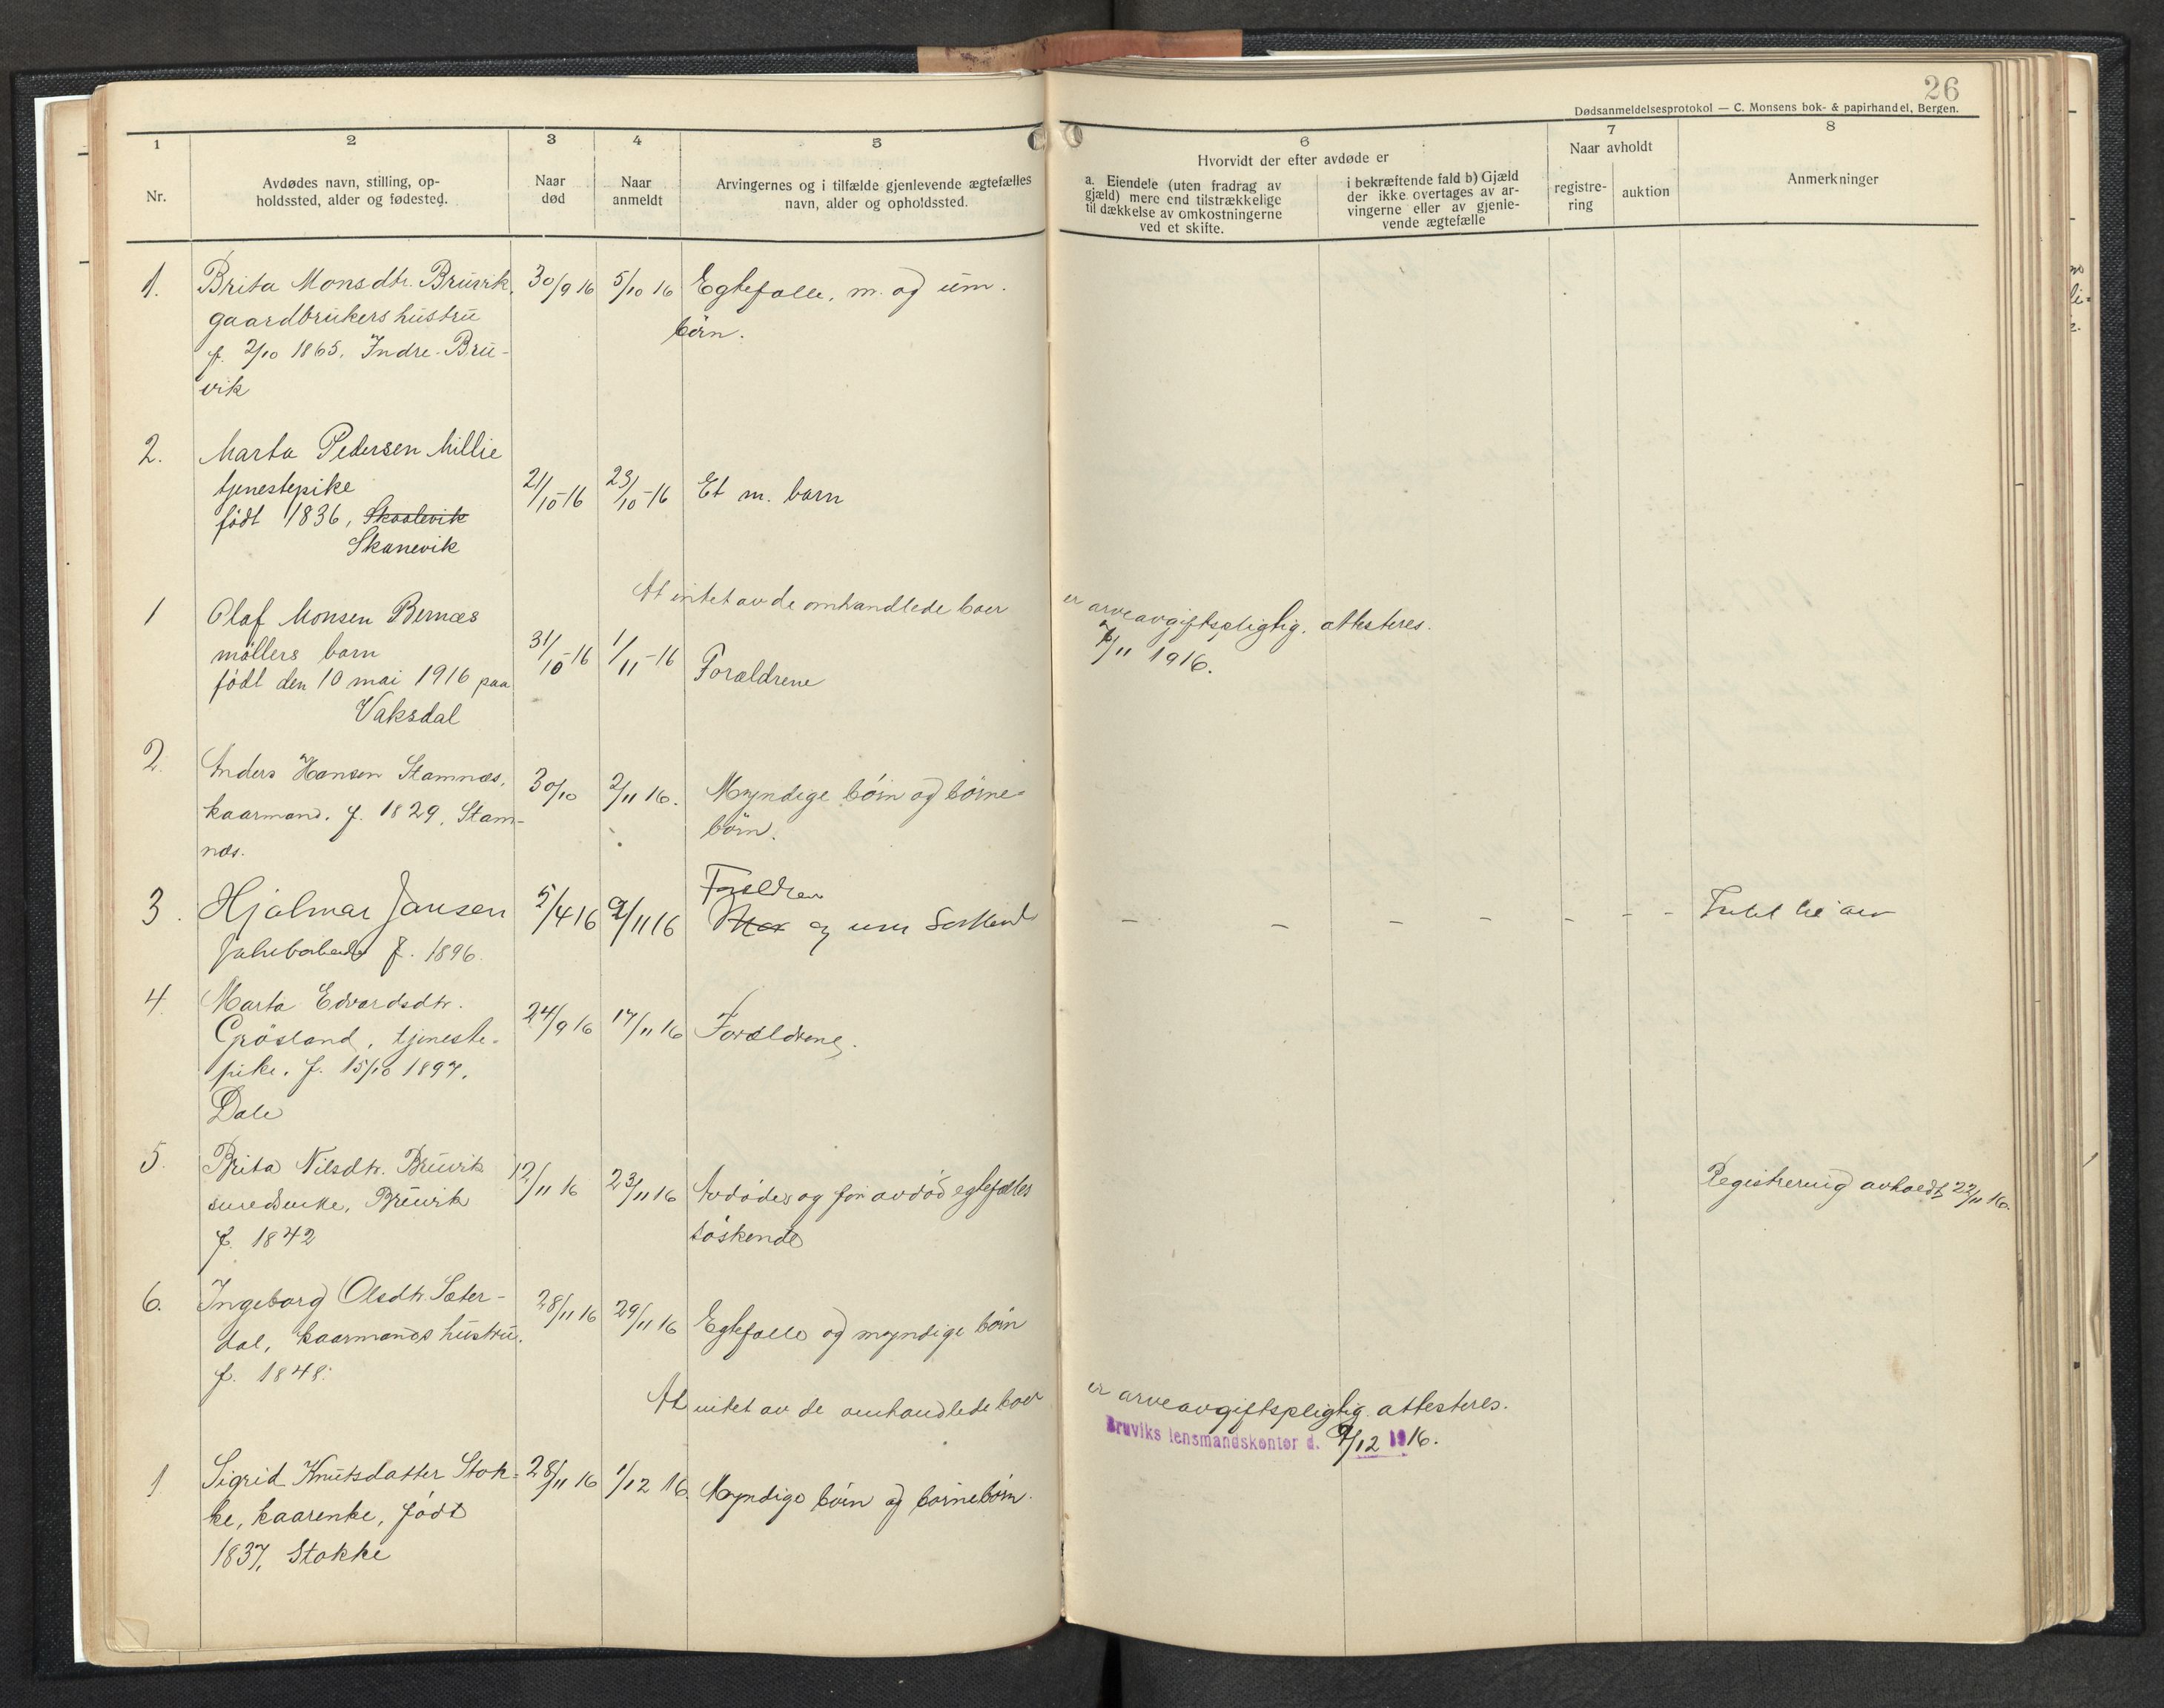 26
Dødsanmeldelsesprotokol — C. Monsens bok- & papirhandel, Bergen.
1
Nr.
2
Avdødes navn, stilling, op-
holdssted, alder og fødested.
3
Naar
død
4
Naar
anmeldt
5
Arvingernes og i tilfælde gjenlevende ægtefælles
navn, alder og opholdssted.
6
Hvorvidt der efter avdøde er
a. Eiendele (uten fradrag av
gjæld) mere end tilstrækkelige
til dækkelse av omkostningerne
ved et skifte.
i bekræftende fald b) Gjæld
der ikke overtages av ar-
vingerne eller av gjenle-
vende ægtefælle
7
Naar avholdt
registre-
ring
auktion
8
Anmerkninger
1. Brita Monsdtr. Bruvik, 30/9 16 5/10 16 Egtefælle, m. og um.
gaardbrukers hustru børn.
f. 2/10 1865. Indre-Bru-
vik
2. Marta Pedersen Millie
tjenestepike 21/10-16 23/10-16 Et m. barn
født 1836, Skaalevik
Skanevik
At intet av de omhandlede boer er arveavgiftspligtig, attesteres.
7/11 1916.
1 Olaf Monsen Bernæs
møllers barn 31/10-16 1/11-16 Forældrene
født den 10 mai 1916 paa
Vaksdal
2. Anders Hansen Stamnæs, 30/10 2/11 16. Myndige børn og børne-
kaarmand. f. 1829, Stam- børn.
næs.
3. Hjalmar Jansen 5/4 16 9/11 16 Forældre
og um Søskend - - - - - - - Intet til arv
f. 1896.
4. Marta Edvardsdtr. 24/9 16 17/11 16 Forældrene.
Grøsland, tjeneste-
pike. f. 15/10 1897.
Dale
5. Brita Nilsdtr. Bruvik 12/11 16 23/11 16 Avdødes og før avdød egtefælles Registrering avholdt 22/11 16.
Bruvik søskende
f. 1842
6. Ingeborg Olsdtr. Sæter- 28/11 16 29/11 16 Egtefælle og myndige børn
dal, kaarmands hustru.
f. 1848.
At intet av de omhandlede boer er arveavgiftspligtig attesteres.
Bruviks lensmandskontor d. 9/12 1916.
1 Sigrid Knutsdatter Stok- 28/11 16 1/12 16. Myndige børn og børnebørn.
ke, kaarenke, født
1837, Stokke